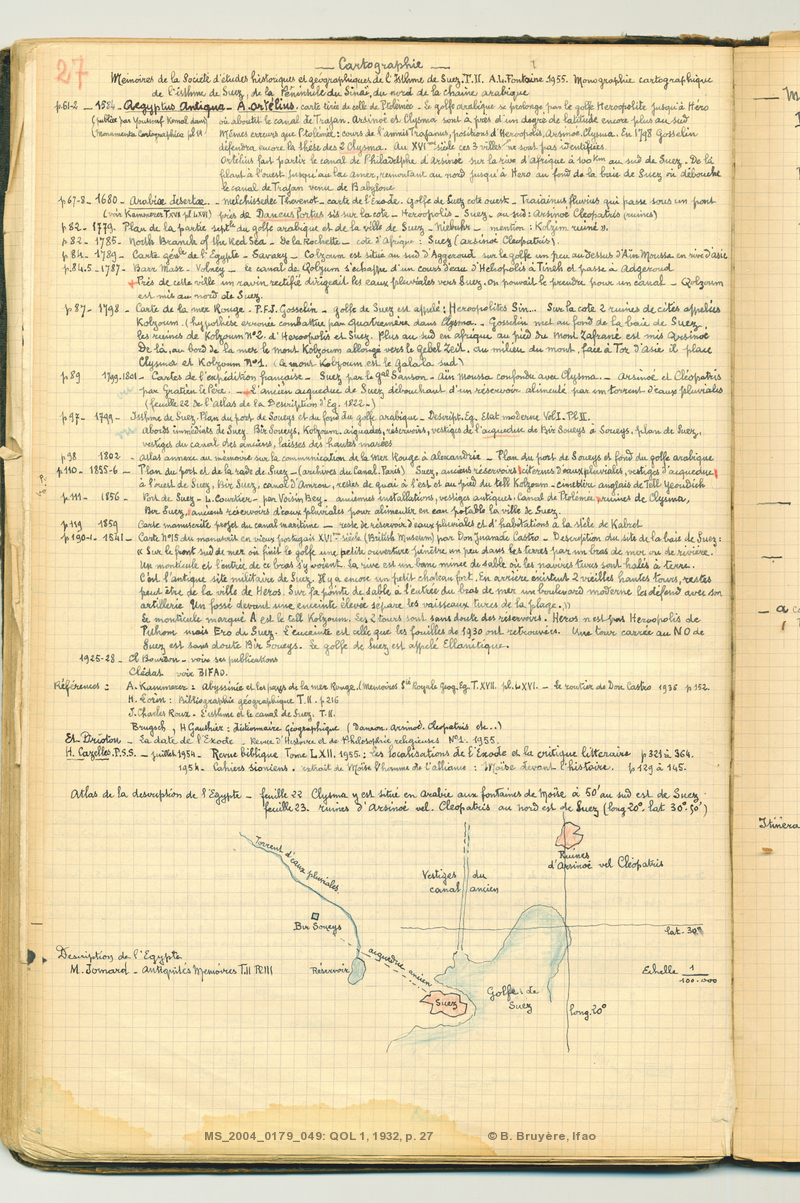 27
Cartographie
Memoires de la Societé d'etudes historiques et geographiques de l'Isthme de Suez. T. II. A.L. Fontaine 1955. Monographie cartographique
de l'isthme de Suez, de la Péninsule du Sinaï, du nord de la chaine arabique
p.61-2 _ 1584 _ Aegyptus Antiqua _ A. Ortelius. carte tirée de celle de Ptolemée _ le golfe arabique se prolonge par le golfe Heropolite jusqu'à Hero
(publiée par Youssouf Kamal dans
Monumenta Cartographica pl.
où aboutit le canal de Trajan. Arsinoé et Clysma sont à près d'un degré de latitude encore plus au sud
Mêmes erreurs que Ptolemée: cours de l'amnis Trajanus, positions d'Heropolis, Arsinoé, Clysma. En 1798 Gosselin
défendra encore la thèse des 2 Clysma. Au XVIme siècle ces 3 villes ne sont pas identifiées.
Ortelius fait partir le canal de Philadelphe d'Arsinoé sur la rive d'Afrique à 100 Km au sud de Suez. De là
filant à l'ouest jusqu'au lac amer, remontant au nord jusqu'à Hero au fond de la baie de Suez où débouche
le canal de Trajan venu de Babylone
p.67-8 _ 1680 _ Arabiae Desertae. _ Melchissedec Thevenot _ carte de l'Exode. Golfe de Suez cote ouest _ Traiainus fluvius qui passe sous un pont
(voir Kammerer T XVII pl. LXVI) près de Daneus Portus sis sur la cote _ Heropolis _ Suez. au sud: Arsinoe Cleopatris (ruines)
p.82 _ 1779. Plan de la partie septle du golfe arabique et de la ville de Suez _ Niebuhr _ mention: Kolzim ruiné.
p.82 _ 1785. North Branch of the Red Sea _ De la Rochette _ cote d'Afrique: Suez (Arsinoe Cleopatris).
p.84 _ 1789 _ Carte génle de l'Egypte _ Savary _ Colzoum est situé au sud d'Aggeroud sur le golfe un peu au dessus d'Aïn Moussa en rive d'Asie
p.84.5 _ 1787 _ Barr Masr _ Volney _ le canal de Qolzum s'echappe d'un cours d'eau d'Heliopolis à Tineh et passe à Adgeroud
+ Près de cette ville un ravin rectifié dirigeait les eaux pluviales vers Suez. On pouvait le prendre pour un canal _ Qolzoum
est mis au nord de Suez.
p.87 _ 1798 _ Carte de la mer Rouge. P.F.J. Gosselin _ golfe de Suez est appelé: Heroopolites Sin... Sur la cote 2 ruines de cités appelées
Kolzoum. (hypothèse erronée combattue par Quatremère dans Clysma. _ Gosselin met au fond de la baie de Suez,
les ruines de Kolzoum No 2. d'Heroopolis et Suez. Plus au sud en afrique au pied du mont Zafrané est mis Arsinoé
De là, au bord de la mer le mont Kolzoum allongé vers le Gebel Zeit. Au milieu du mont, face à Tor d'Asie il place
Clysma et Kolzoum No 1. (le mont Kolzoum est le Galala sud)
p.89 1799-1801 _ Cartes de l'expédition française _ Suez par le Gal Sanson. _ Ain Moussa confondu avec Clysma. _ Arsinoé et Cléopatris
par Gratien le Père. _ + l'ancien aqueduc de Suez débouchant d'un réservoir alimenté par un torrent d'eaux pluviales
(feuille 22 de l'atlas de la Description d'Eg. 1822 _)
p.97 _ 1799 _ Isthme de Suez. Plan du port de Soueys et du fond du golfe arabique _ Descript. Eg. Etat moderne Vol I. Pl. II.
abords immédiats de Suez. Bir Soueys, Kolzoum, aiguades, réservoirs, vestiges de l'aqueduc de Bir Soueys à Soueys, plan de Suez,
vestiges du canal des anciens, laisses des hautes marées
p.98 1802 _ Atlas annexe au mémoire sur la communication de la Mer Rouge à Alexandrie _ Plan du port de Soueys et fond du golfe arabique
p.110 _ 1855-6 _ Plan du port et de la rade de Suez _ (archives du Canal. Paris) Suez, anciens réservoirs citernes d'eaux pluviales, vestiges d'aqueduc
à l'ouest de Suez, Bir Suez, canal d'Amrou, restes de quai à l'est et au pied du tell Kolzoum _ cimetière anglais de Tell Yeoudieh
p.111 _ 1856 _ Port de Suez _ le Courtier _ par Voisin Bey _ anciennes installations, vestiges antiques. Canal de Ptolémée, ruines de Clysma,
Bir Suez, anciens réservoirs d'eaux pluviales pour alimenter en eau potable la ville de Suez.
p.119 1859 Carte manuscrite projet du canal maritime _ reste de réservoir d'eaux pluviales et d'habitations à la stèle de Kabret
p.190-1 _ 1541 _ Carte No 15 du manuscrit en vieux portugais XVIme siècle (British Museum) par Don Juan de Castro _ Description du site de la baie de Suez:
« Sur le front sud de mer où finit le golfe une petite ouverture pénètre un peu dans les terres par un bras de mer ou de rivière.
Un monticule et l'entrée de ce bras s'y voient. La rive est un banc mince de sable où les navires turcs sont halés à terre.
C'est l'antique site militaire de Suez. Il y a encore un petit chateau fort. En arrière existent 2 vieilles hautes tours, restes
peut être de la ville de Heros. Sur la pointe de sable à l'entrée du bras de mer un boulevard moderne les défend avec son
artillerie. Un fossé devant une enceinte élevée sépare les vaisseaux turcs de la plage. »
Le monticule marqué A est le tell Kolzoum. Les 2 tours sont sans doute des réservoirs. Heros n'est pas Heroopolis de
Pithom mais Ero de Suez. L'enceinte est celle que les fouilles de 1930 ont retrouvées. Une tour carrée au NO de
Suez est sans doute Bir Soueys. Le golfe de Suez est appelé Ellanitique.
1925-28 _ Cl Bourdon _ voir ses publications
Clédat voir BIFAO.
Références: A. Kammerer: Abyssinie et les pays de la mer Rouge. (Memoires Sté Royale Geog. Eg. T. XVII. pl. LXVI. _ le routier de Don Castro 1936 p 152.
H. Lorin: Bibliographie géographique T. II. p 216
J. Charles Roux. L'isthme et le canal de Suez. T. II.
Brugsch, H Gauthier: dictionnaire Géographique (Daneon. Arsinoé. Cleopatris etc..)
Et. Drioton _ La date de l'Exode _ Revue d'Histoire et de Philosophie religieuses No 1. 1955.
H. Cazelles. P.S.S. _ juillet 1954 _ Revue biblique Tome LXII. 1955: les localisations de l'Exode et la critique litteraire p 321 à 364.
1954 _ Cahiers sioniens. extrait de Moïse l'homme de l'alliance: Moïse devant l'histoire. p 129 à 145.
Atlas de la description de l'Egypte _ feuille 22 Clysma y est situé en Arabie aux fontaines de Moïse à 50' au sud est de Suez
feuille 23. ruines d'Arsinoé vel. Cleopatris au nord est de Suez (long 20°. lat 30°.50')
Torrent d'eaux pluviales.
Vestiges du
canal ancien
Ruines
d'Arsinoé vel Cléopatris
Bir Soueys
lat. 30°
Description de l'Egypte
M. Jomard _ Antiquités Memoires T.II Pl III
Réservoir
aqueduc ancien
Suez
Golfe de
Suez
long. 20°
Echelle 1/100.000
Itinera
MS_2004_0179_049: QOL 1, 1932, p. 27 © B. Bruyère, Ifao